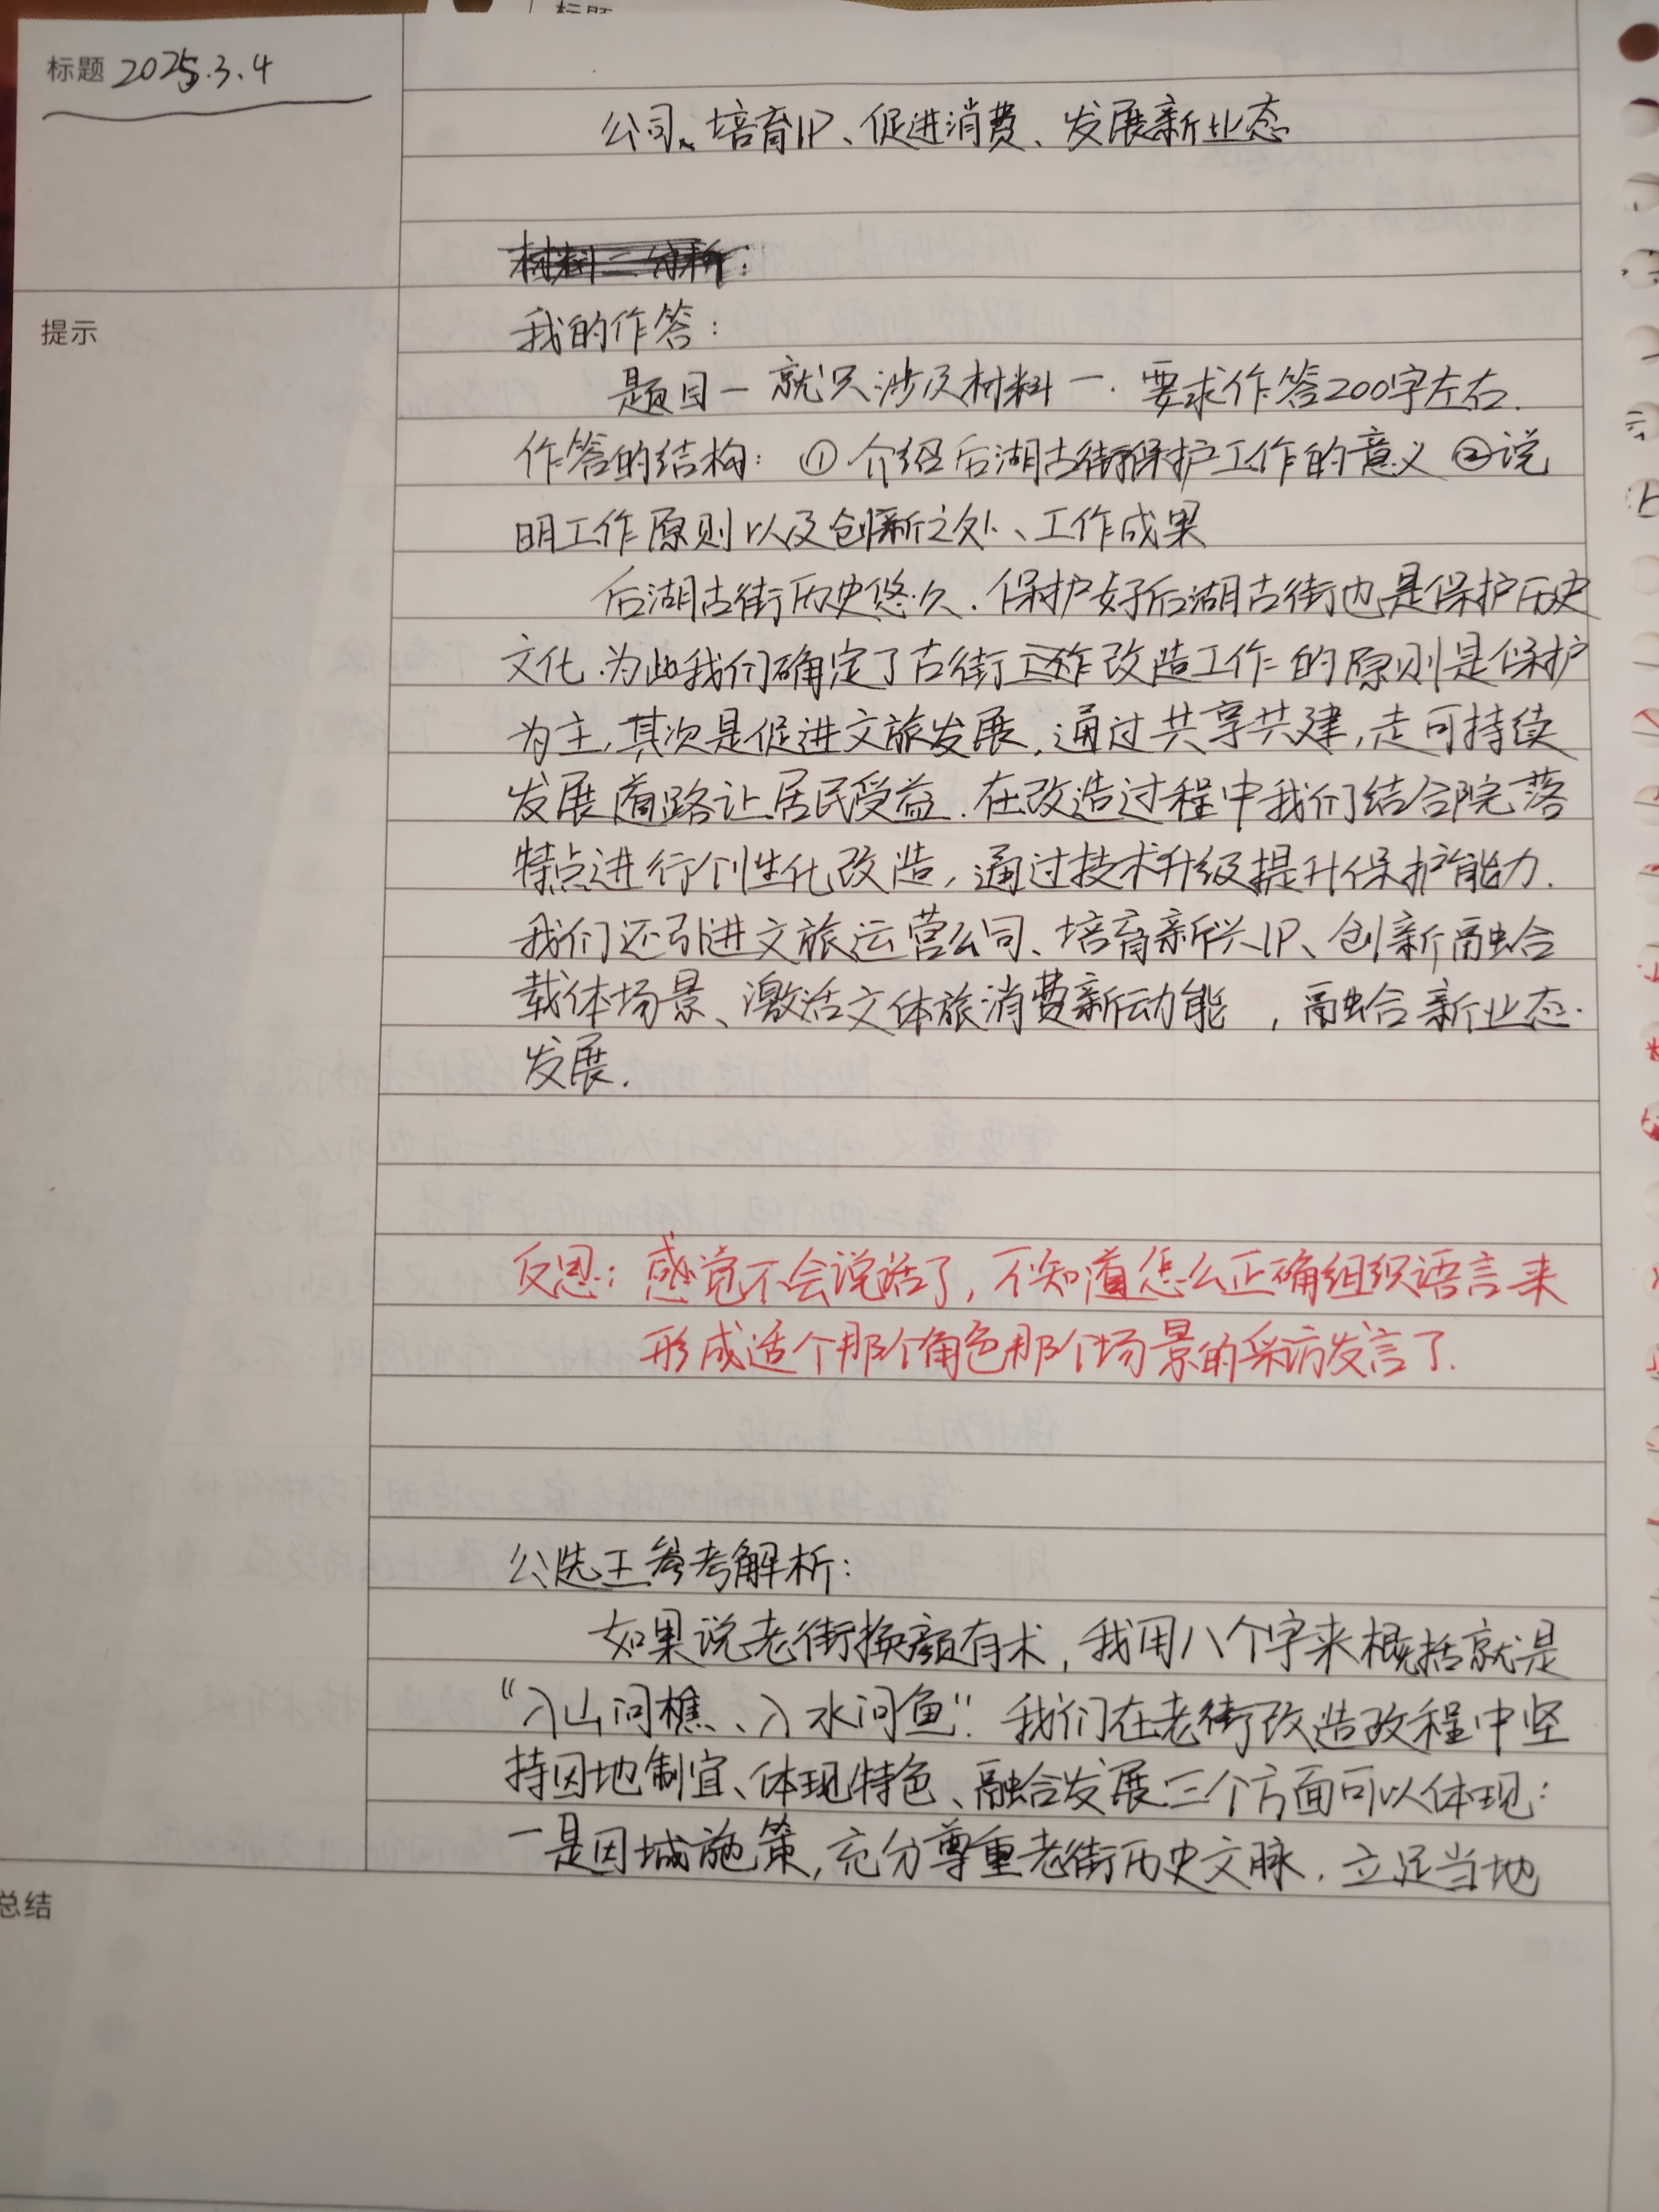 标题
标题 2025.3.4
公司、培育IP、促进消费、发展新业态
材料二分析:
提示
我的作答:
题目一就只涉及材料一.要求作答200字左右.
作答的结构: ①介绍后湖古街保护工作的意义 ②说
明工作原则以及创新之处、工作成果
后湖古街历史悠久.保护好后湖古街也是保护历史
文化.为此我们确定了古街工作改造工作的原则是保护
为主,其次是促进文旅发展,通过共享共建,走可持续
发展道路让居民受益.在改造过程中我们结合院落
特点进行个性化改造,通过技术升级提升保护能力.
我们还引进文旅运营公司、培育新兴IP、创新融合
载体场景、激活文体旅消费新动能,融合新业态
发展.
反思:感觉不会说话了,不知道怎么正确组织语言来
形成适个那个角色那个场景的采访发言了.
公选王参考解析:
如果说老街换颜有术,我用八个字来概括就是
“入山问樵、入水问鱼”.我们在老街改造改程中坚
持因地制宜、体现特色、融合发展三个方面可以体现:
一是因城施策,充分尊重老街历史文脉.立足当地
总结